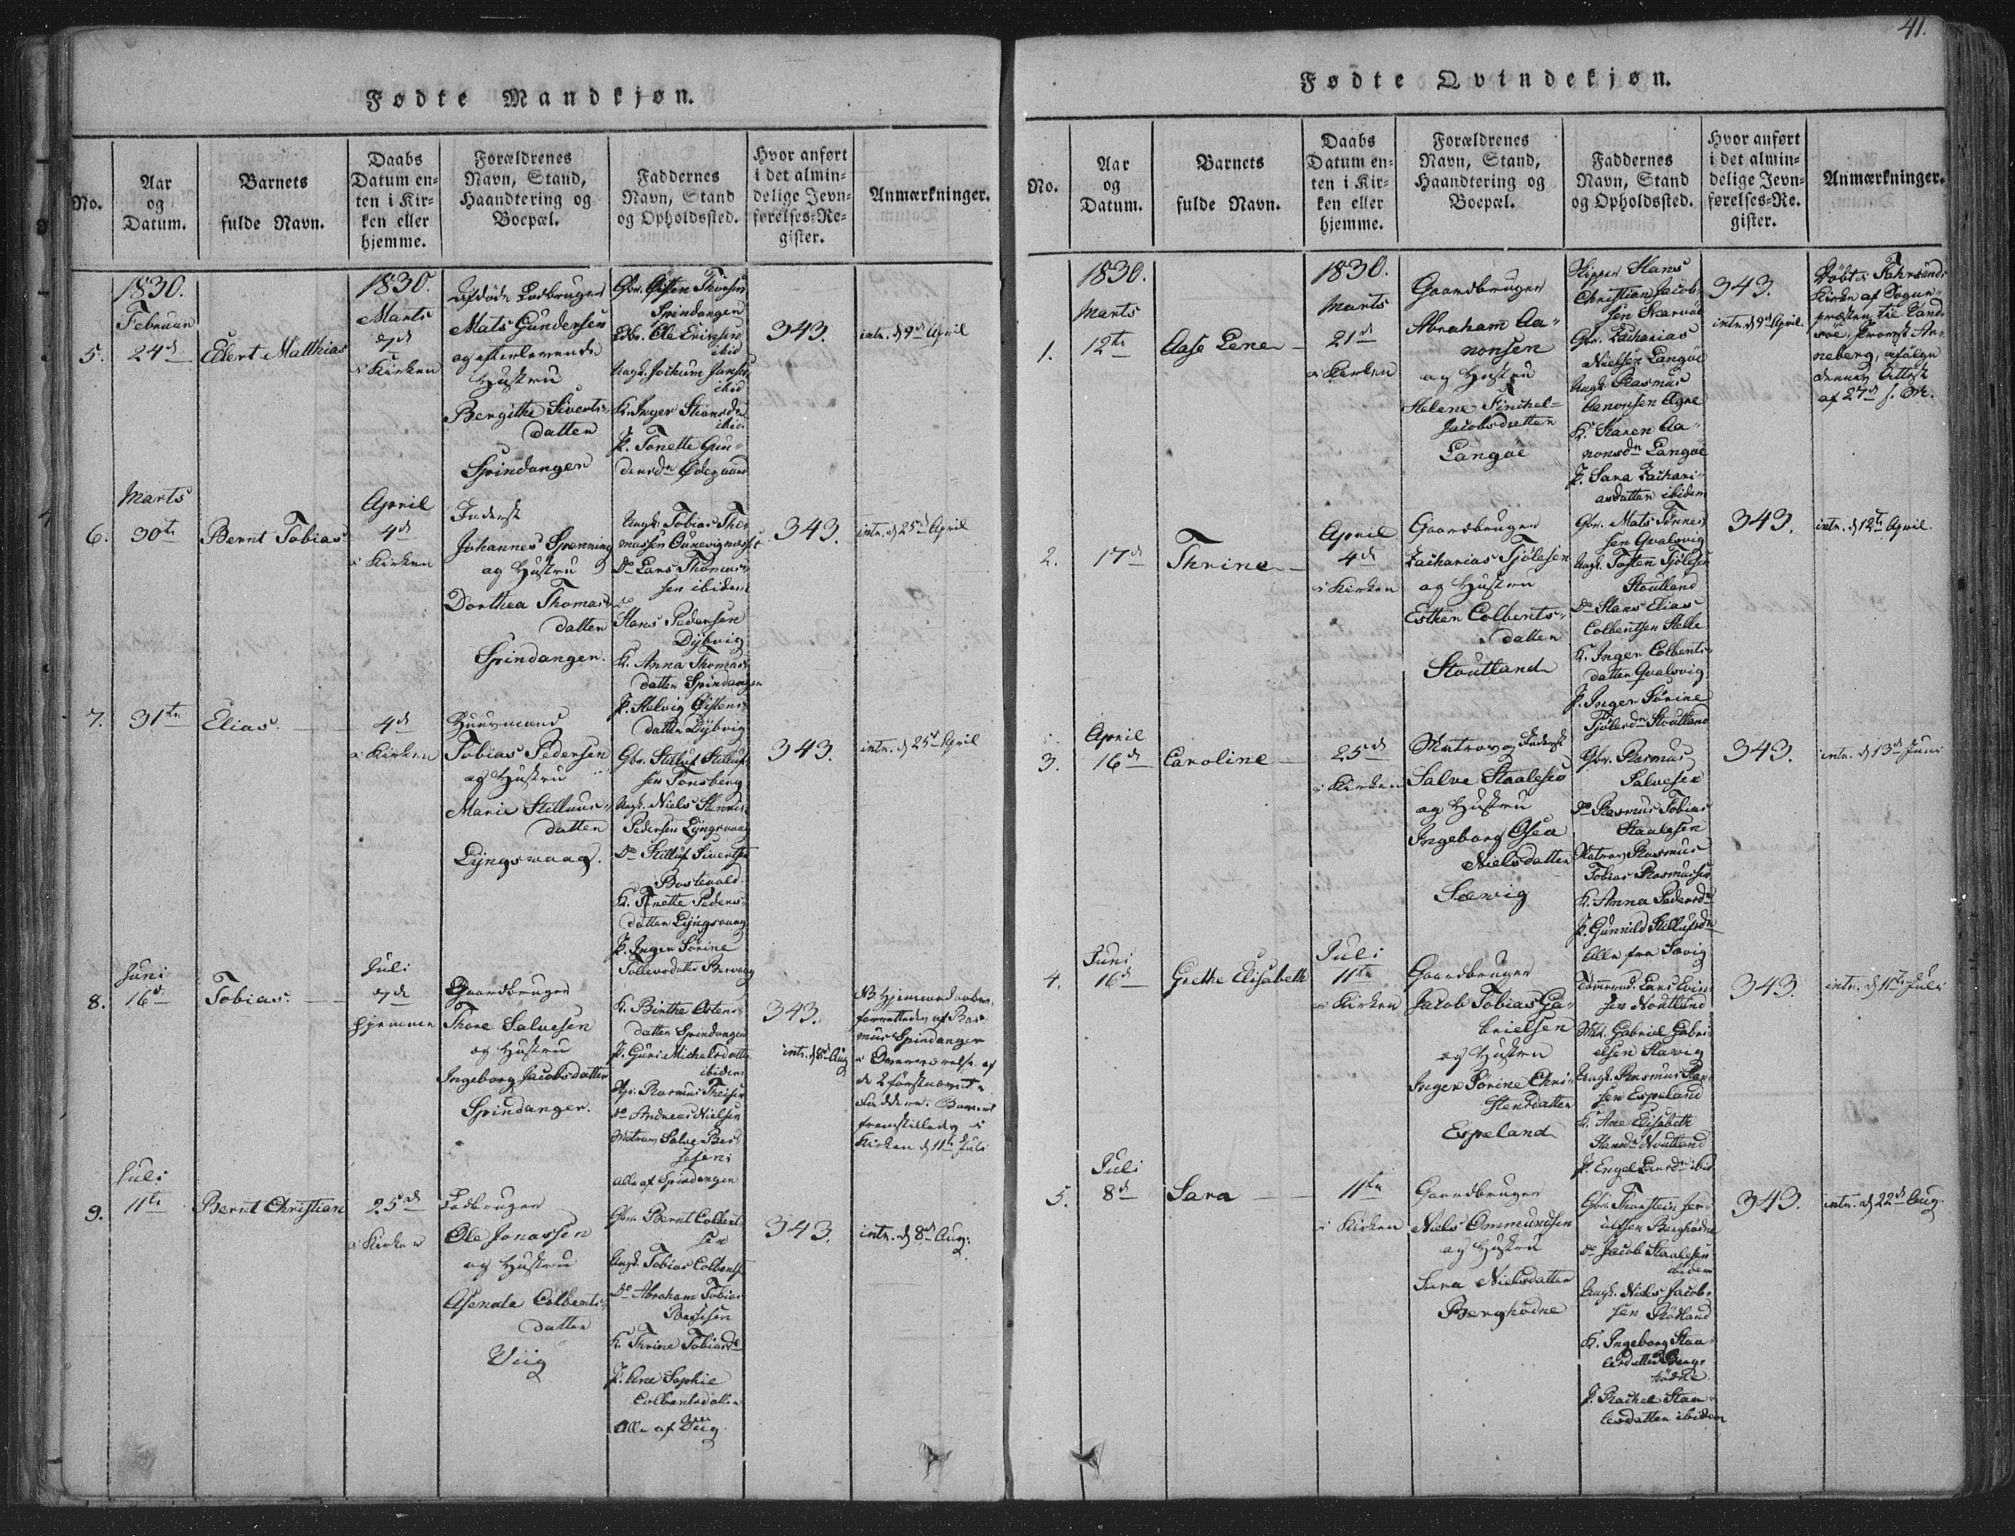 41.
Fødte Mandkjøn.
No.
Aar
og
Datum.
Barnets
fulde Navn.
Daabs
Datum en-
ten i Kir-
ken eller
hjemme.
Forældrenes
Navn, Stand,
Haandtering og
Boepæl.
Faddernes
Navn, Stand
og Opholdssted.
Hvor anført
i det almin-
delige Jevn-
førelses-Re-
gister.
Anmærkninger.
1830.
Februar
5. 24d
Edert Matthias
1830.
Marts
7d
i Kirken
Afdøde Ledbruger
Mats Gundersen
og efterlevende
Hustru
Bergithe Siverts-
datter
Spindangen
Gbr. Østen Thorsen
Spindangen
Ole Erichsen
ibid
Ungk. Jochum Jansen
ibid
K. Inger
ibid.
P. Tonette Gun-
dersd. Ødegaard
343.
intr. d 9d April
Marts
6. 30te
Bernt Tobias
April
4d
i Kirken
Inderst
Johannes Spenning
og Hustru
Dorthea Thomas-
datter
Spindangen.
Ungk. Tobias Tho-
massen
Do Lars Thomas-
sen ibidem
Do
Hans Pedersen
Dybvig
K. Anna Thomas-
datter Spindangen
P. Helvig Østens-
datter Dybvig
343.
intr. d 25d April
7. 31te
Elias.
4d
i Kirken
Huusmand
Tobias Pedersen
og Hustru
Marie Stelluus-
datter
Lyngsvaag.
Gbr. Stelluf Stelluf-
sen Tonsberg
Ungk. Niels
Pedersen Lyngsvaag
Do Stelluf Sivertsen
K. Tonette Peders-
datter Lyngsvaag
P. Inger Sørine
Tollevsdatter
343.
intr. d 25d April
Juni
8. 16d
Tobias.
Juli
7de
hjemme
Gaardbruger
Thore Salvesen
og Hustru
Ingeborg Jacobsdatter
Spindangen.
K. Birthe Ostens-
datter Spindangen
P. Guri Michelsdatter
ibidem
Gbr. Rasmus Theisen
Do Andreas Nielsen
Matros Salve
Alle af Spindangen
343.
intr. d 8d Aug
NB. Hjemmedaaben
forrettedes af Ras-
mus Spindangen
i Overværelse af
de 2 førstnævnte
Faddere. Barnet
fremstilledes i
Kirken d 11te Juli
Juli
9. 11te
Bernt Christian
25de
i Kirken
Ledbruger
Ole Jonassen
og Hustru
Asenate Colbents-
datter
Viig
Gbr. Bernt Colbent-
sen
Ungk. Tobias Colbents.
Do Abraham Tobias
K. Thrine Tobiasd.
P. Ane Sophie
Colbentsdatter
Alle af Viig.
343.
intr. d 8d Aug.
Fødte Qvindekjøn.
No.
Aar
og
Datum.
Barnets
fulde Navn.
Daabs
Datum en-
ten i Kir-
ken eller
hjemme.
Forældrenes
Navn, Stand,
Haandtering og
Boepæl.
Faddernes
Navn, Stand
og Opholdssted.
Hvor anført
i det almin-
delige Jevn-
førelses-Re-
gister.
Anmærkninger.
1830.
Marts
1. 12te
Aase Lene
1830.
Marts
21d
i Kirken
Gaardbruger
Abraham Aa-
nonsen
og Hustru
Helene
Jacobsdatter
Langøe
Skipper Hans
Christian Jacob-
sen
Gbr. Zacharias
Nielsen Langøe
Ungk. Rasmus
Aanonsen Agre
K. Karen Aa-
nonsd. Langøe
P. Sara Zachari-
asdatter ibidem
343.
intr. d 9d April.
Døbt i
Kirke af Sogne-
præsten til
Provst
ifølge
dennes Attest
af 27d s. M.
2. 17d
Thrine
April
4d
i Kirken
Gaardbruger
Zacharias Tjølesen
og Hustru
Esther Colbents-
datter
Stoutland
Gbr. Mats Tønnes-
sen Qvalsvig
Ungk. Tosten Tjølesen
Stoutland
Do Hans Elias
Colbentsen
K. Inger Colbents-
datter Qvalsvig
P. Inger Sørine
Tjølesd. Stoutland
343.
intr. d 12te April.
April
3. 16d
Caroline
25d
i Kirken
Matros og Inderst
Salve Staalesen
og Hustru
Ingeborg Osea
Nielsdatter
Sævig
Gbr. Rasmus
Salvesen
Do Rasmus Tobias
Staalesen
Matros Rasmus
Tobias Rasmussen
K. Anna Pedersd.
P. Gunnild Stellufsd.
Alle fra Sævig
343.
intr. d 13d Juni
Juni
4. 16d
Grethe Elisabeth
Juli
11te
i Kirken
Gaardbruger
Jacob Tobias Ga-
brielsen
og Hustru
Inger Sørine Chri-
stensdatter
Espeland
Tømmermd. Lars
Gabriel Gabri-
elsen
Ungk. Rasmus
Espeland
K. Ane Elisabeth
P. Engel Larsd. ibid
343.
intr. d 11te Juli
Juli
5. 8d
Sara
11te
i Kirken
Gaardbruger
Niels Ommundsen
og Hustru
Sara Nielsdatter
Berghødne
Gbr. Thorstein
Berghødne
Do Jacob Staalesen
ibidem
Ungk. Niels Jacob-
sen
K. Ingeborg Staa-
lesdatter Berg-
hødne
P. Rachel Staa-
lesdatter ibidem
343.
intr. d 22d Aug.